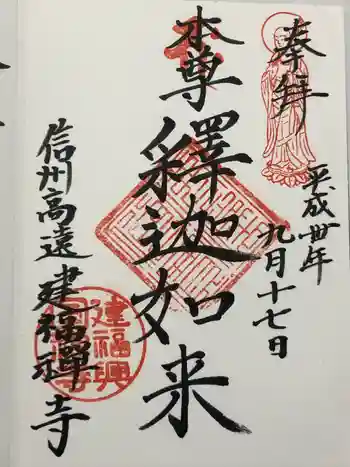 奉拝
平成卅年
九月十七日
本尊
釋迦如来
信州高遠
建福禅寺
建福興